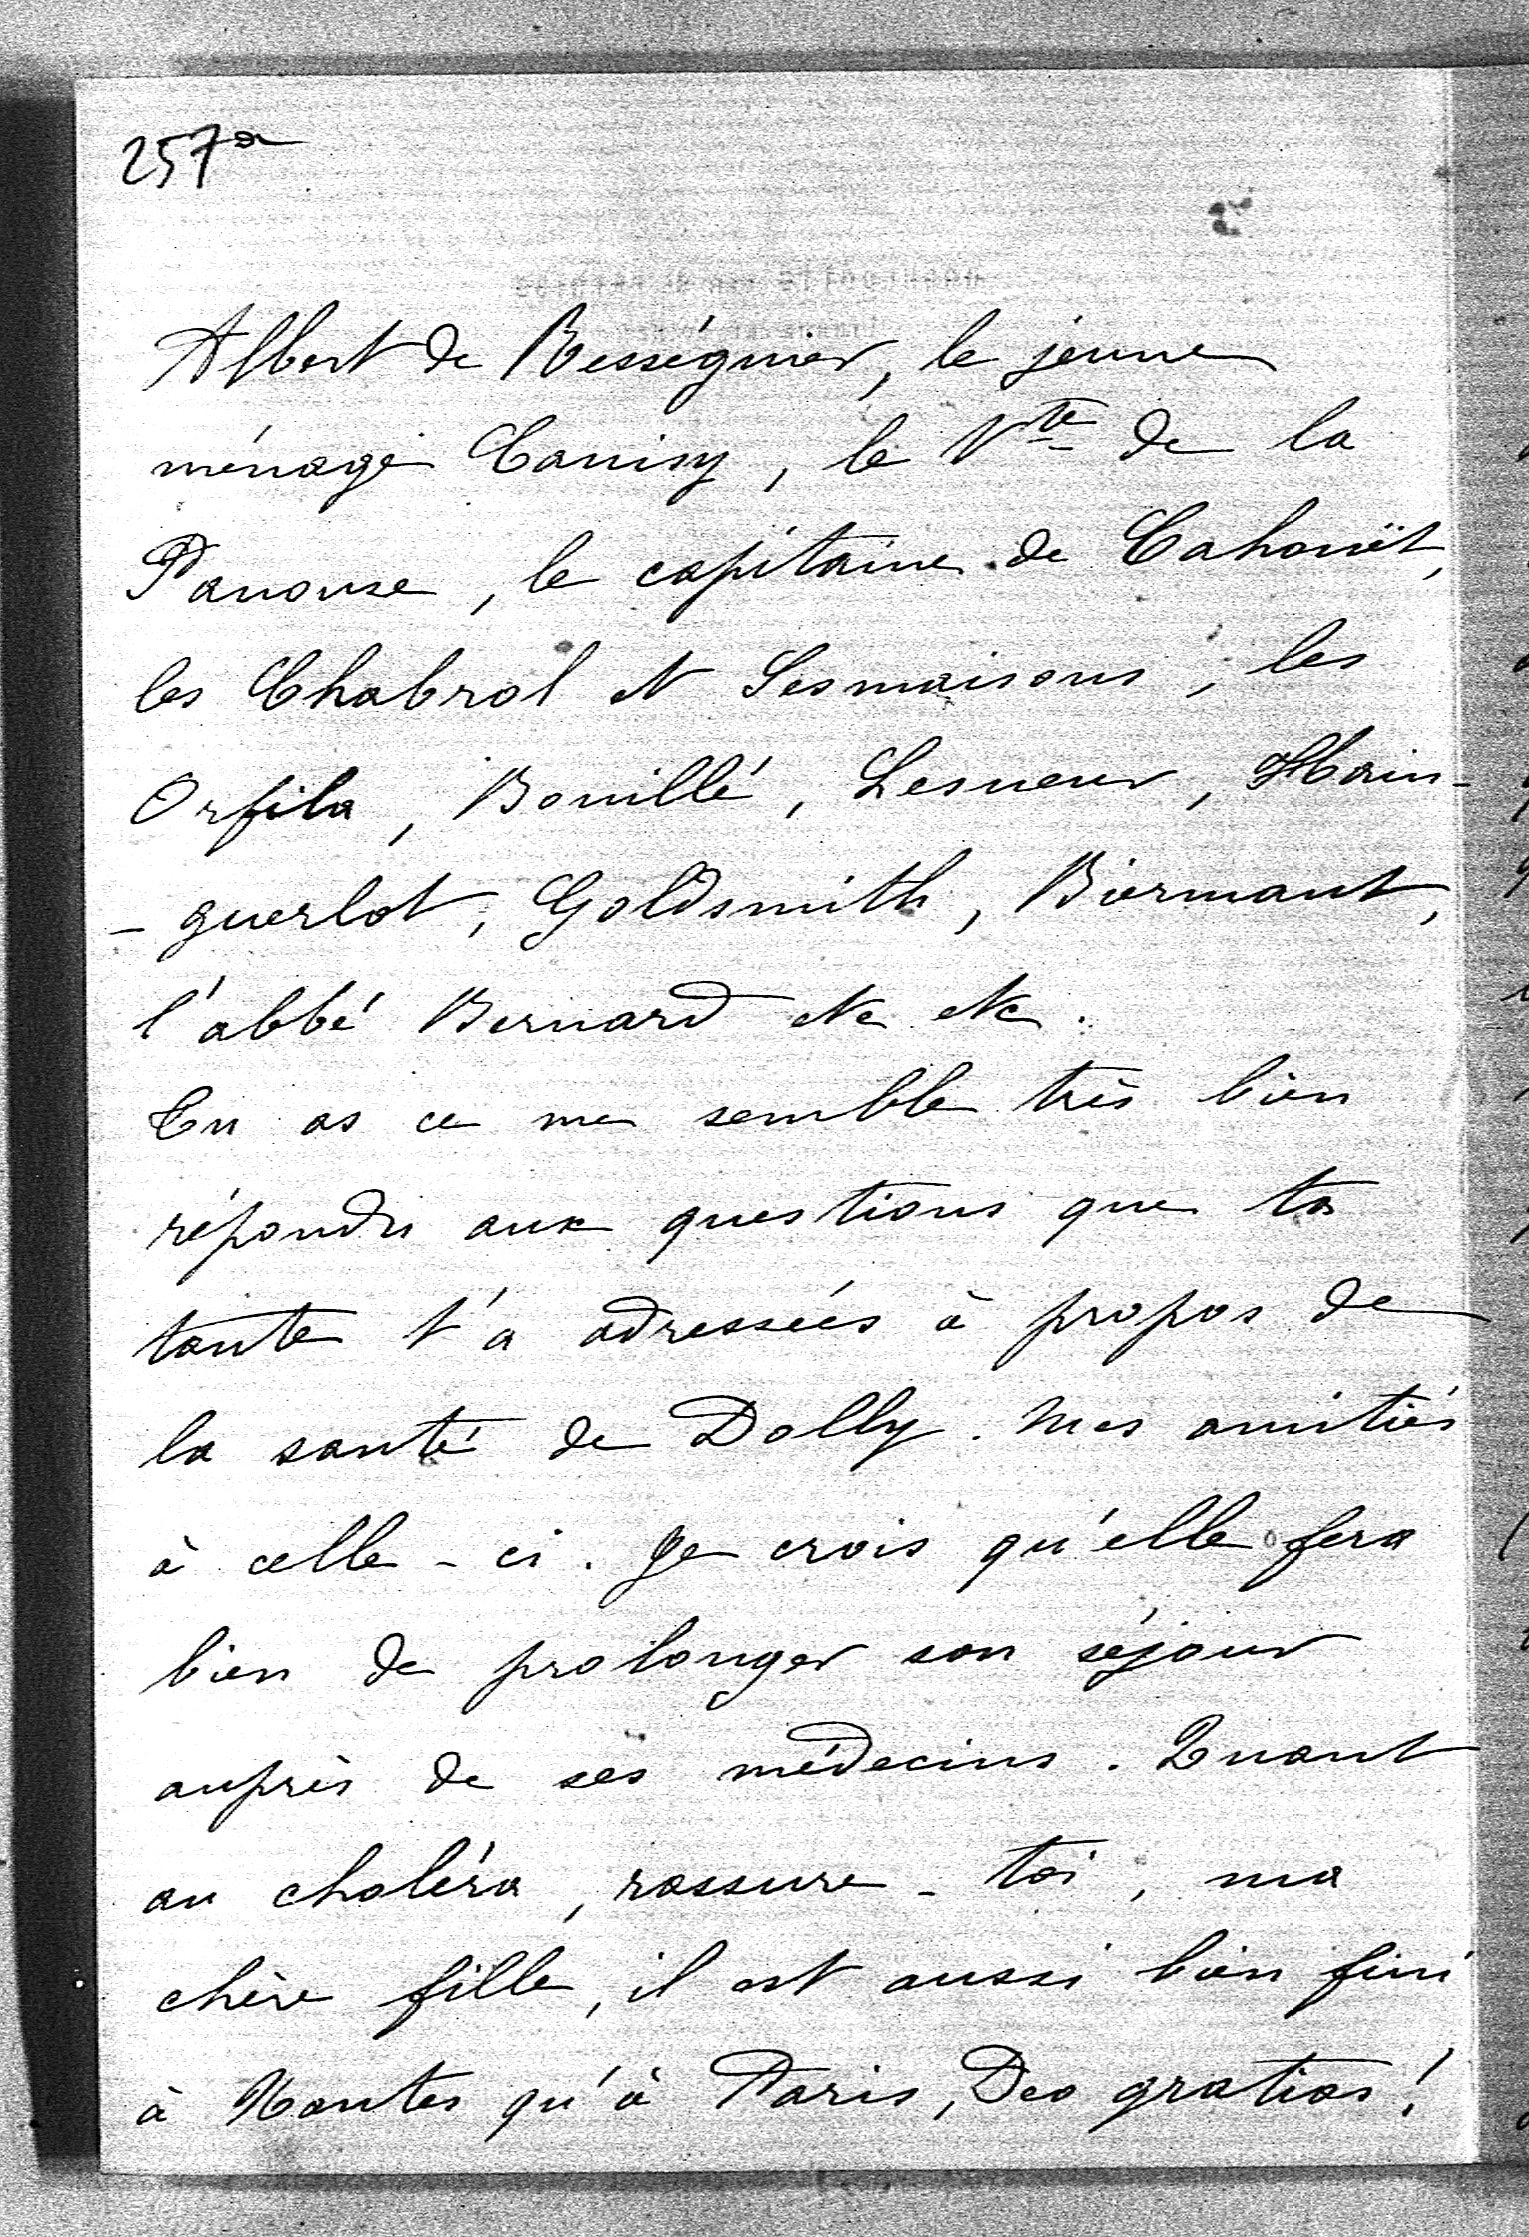 257
Albert de Rességuier, le jeune
ménage Canisy, le Vte de la
Panouse, le capitaine de Cahouët,
les Chabrol et Lesmaisons, les
Orfila, Bouillé, Lesueur, Hain-
-guerlot, Goldsmith, Biermant,
l'abbé Bernard etc etc.
Tu as ce me semble très bien
répondu aux questions que ta
tante t'a adressées à propos de
la santé de Dolly. Mes amitiés
à celle-ci. Je crois qu'elle fera
bien de prolonger son séjour
auprès de ses médecins. Quant
au choléra, rassure-toi, ma
chère fille, il est aussi bien fini
à Nantes qu'à Paris, Deo gratias!